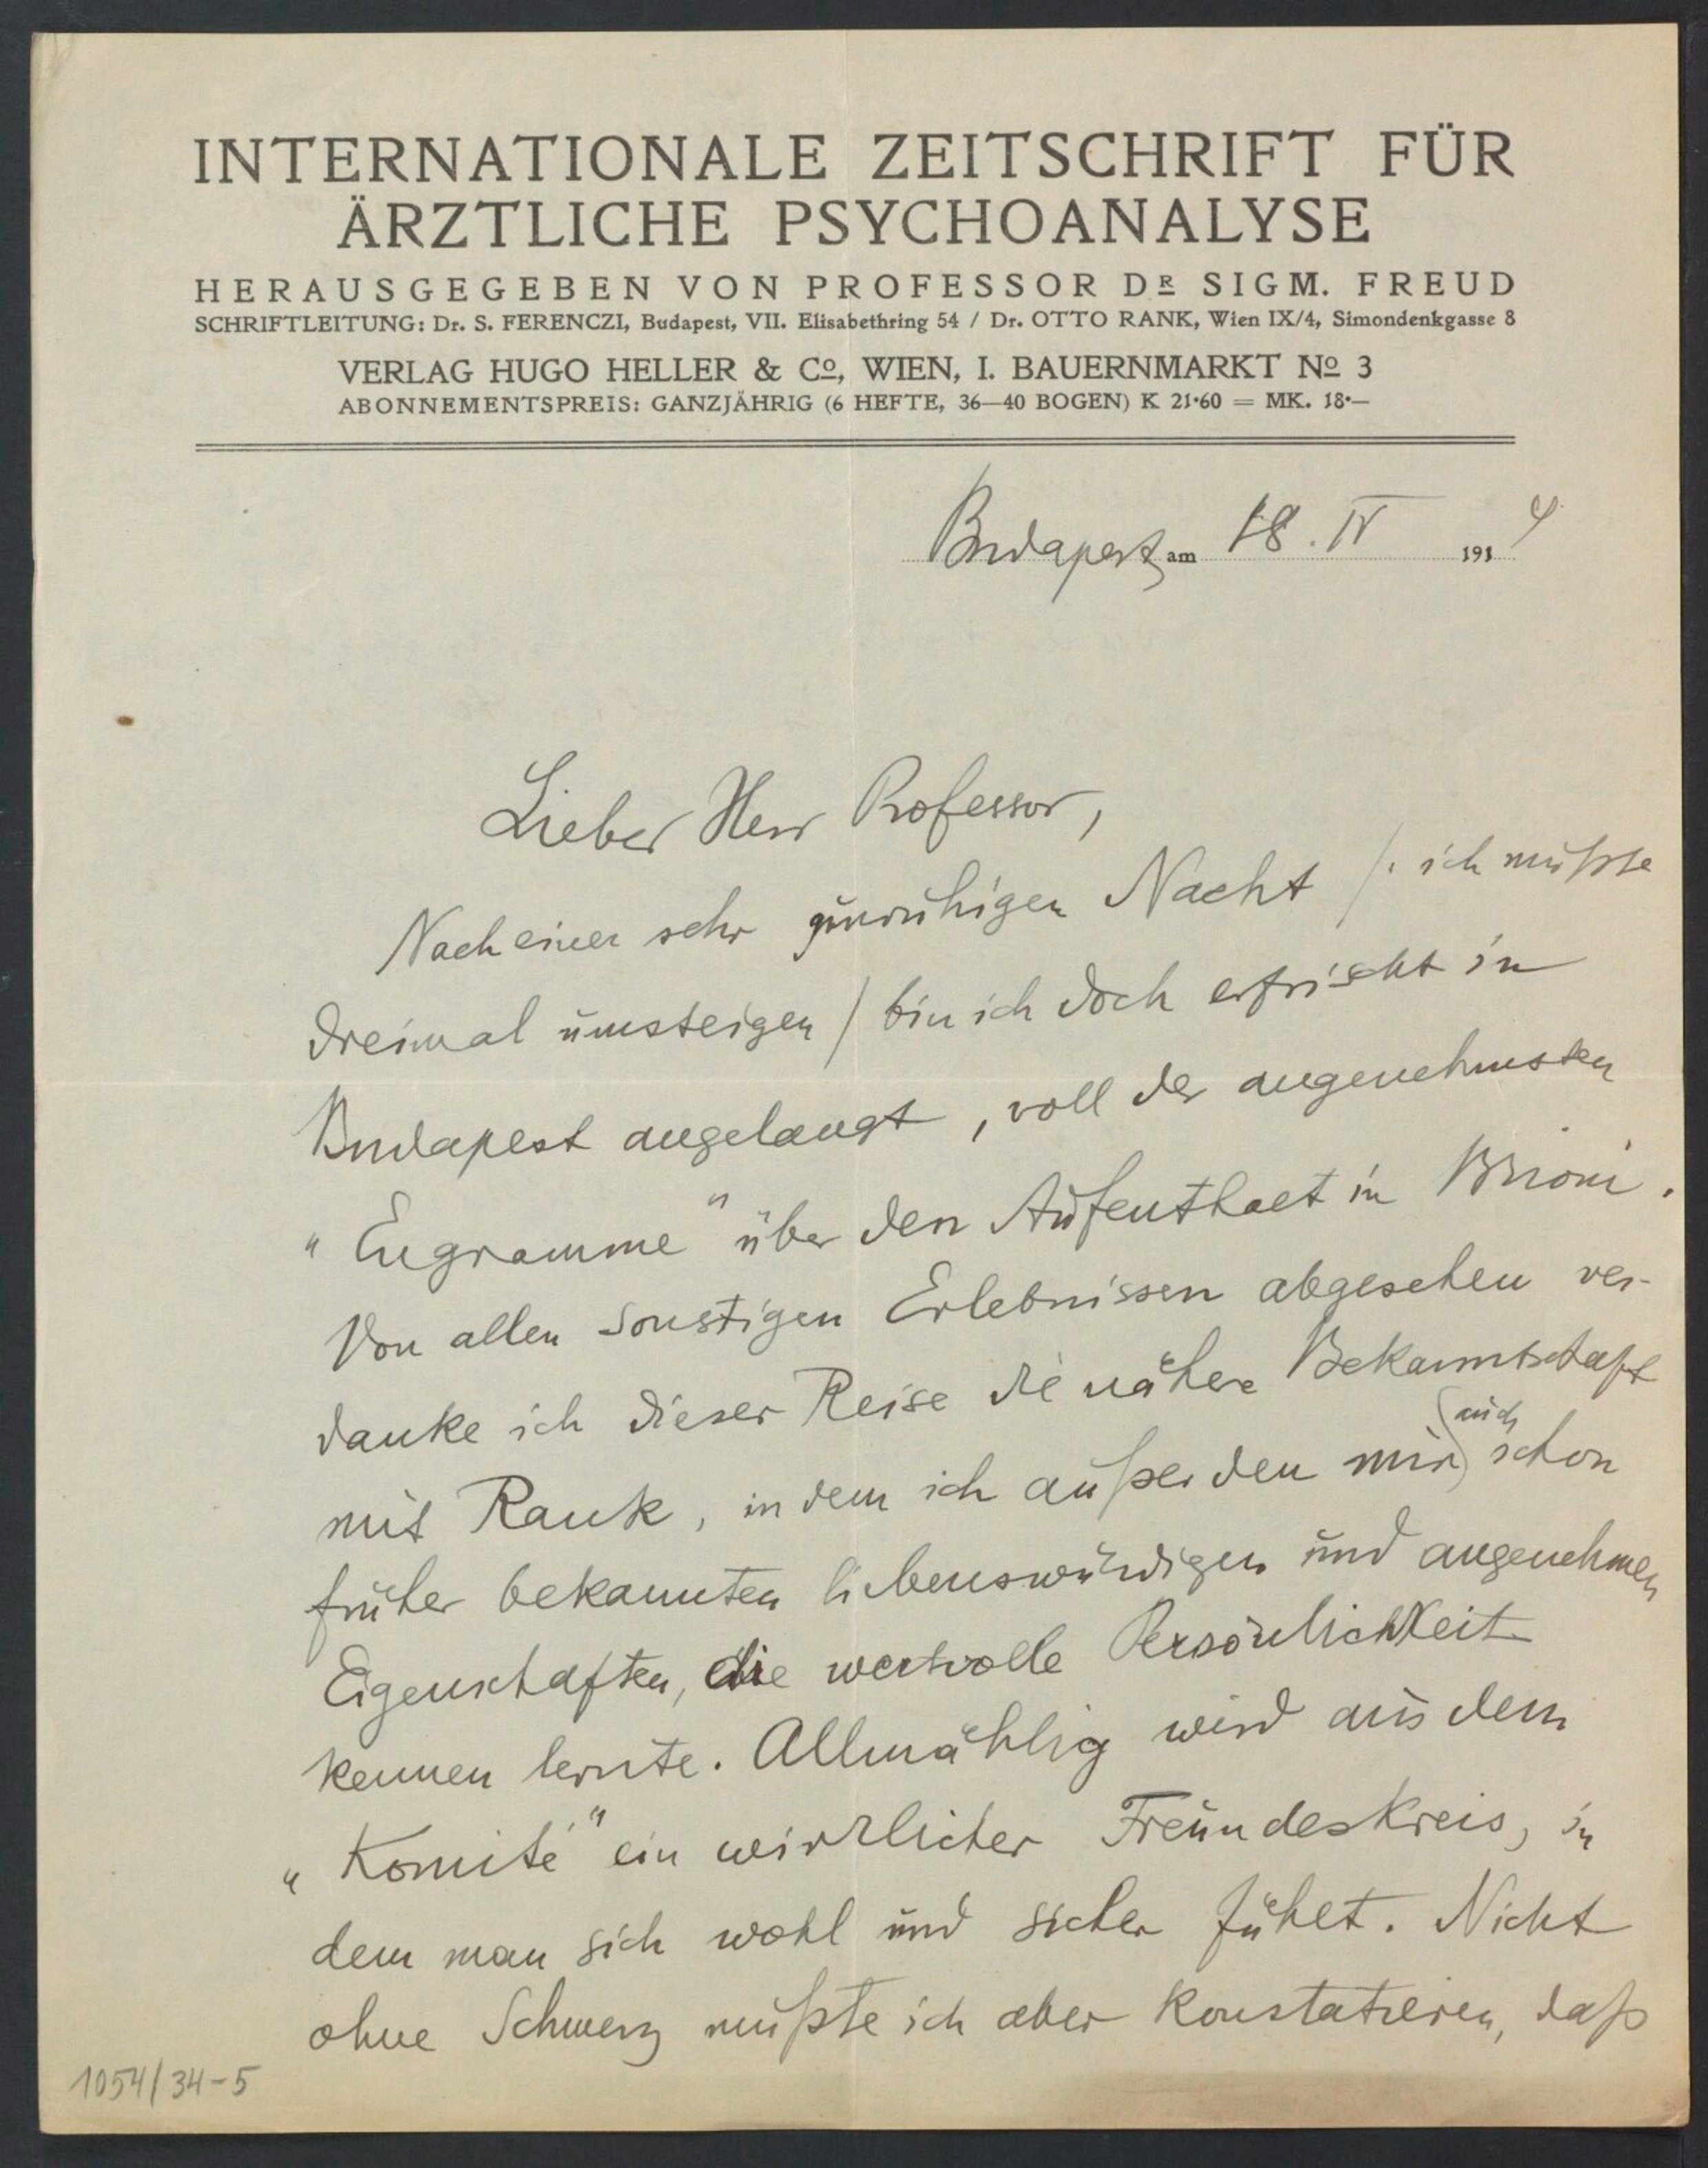 INTERNATIONALE ZEITSCHRIFT FÜR
ÄRZTLICHE PSYCHOANALYSE
HERAUSGEGEBEN VON PROFESSOR DR SIGM. FREUD
SCHRIFTLEITUNG: Dr. S. FERENCZI, Budapest, VII. Elisabethring 54 / Dr. OTTO RANK, Wien IX/4, Simondenkgasse 8
VERLAG HUGO HELLER & Co, WIEN, I. BAUERNMARKT No 3
ABONNEMENTSPREIS: GANZJÄHRIG (6 HEFTE, 36—40 BOGEN) K 21·60 = MK. 18·—
Budapest, am 18. IV 1914
Lieber Herr Professor,
Nach einer sehr unruhigen Nacht /: ich mußte
dreimal umsteigen / bin ich doch erfrischt in
Budapest angelangt, voll der angenehmsten
„Engramme" über den Aufenthalt in Brioni.
Von allen sonstigen Erlebnissen abgesehen ver-
danke ich dieser Reise die nähere Bekanntschaft
mit Rank, in dem ich außer den mir auch schon
früher bekannten liebenswürdigen und angenehmen
Eigenschaften, die wertvolle Persönlichkeit
kennen lernte. Allmählig wird aus dem
„Komité" ein wirklicher Freundeskreis, in
dem man sich wohl und sicher fühlt. Nicht
ohne Schmerz mußte ich aber konstatieren, daß
1054/34-5